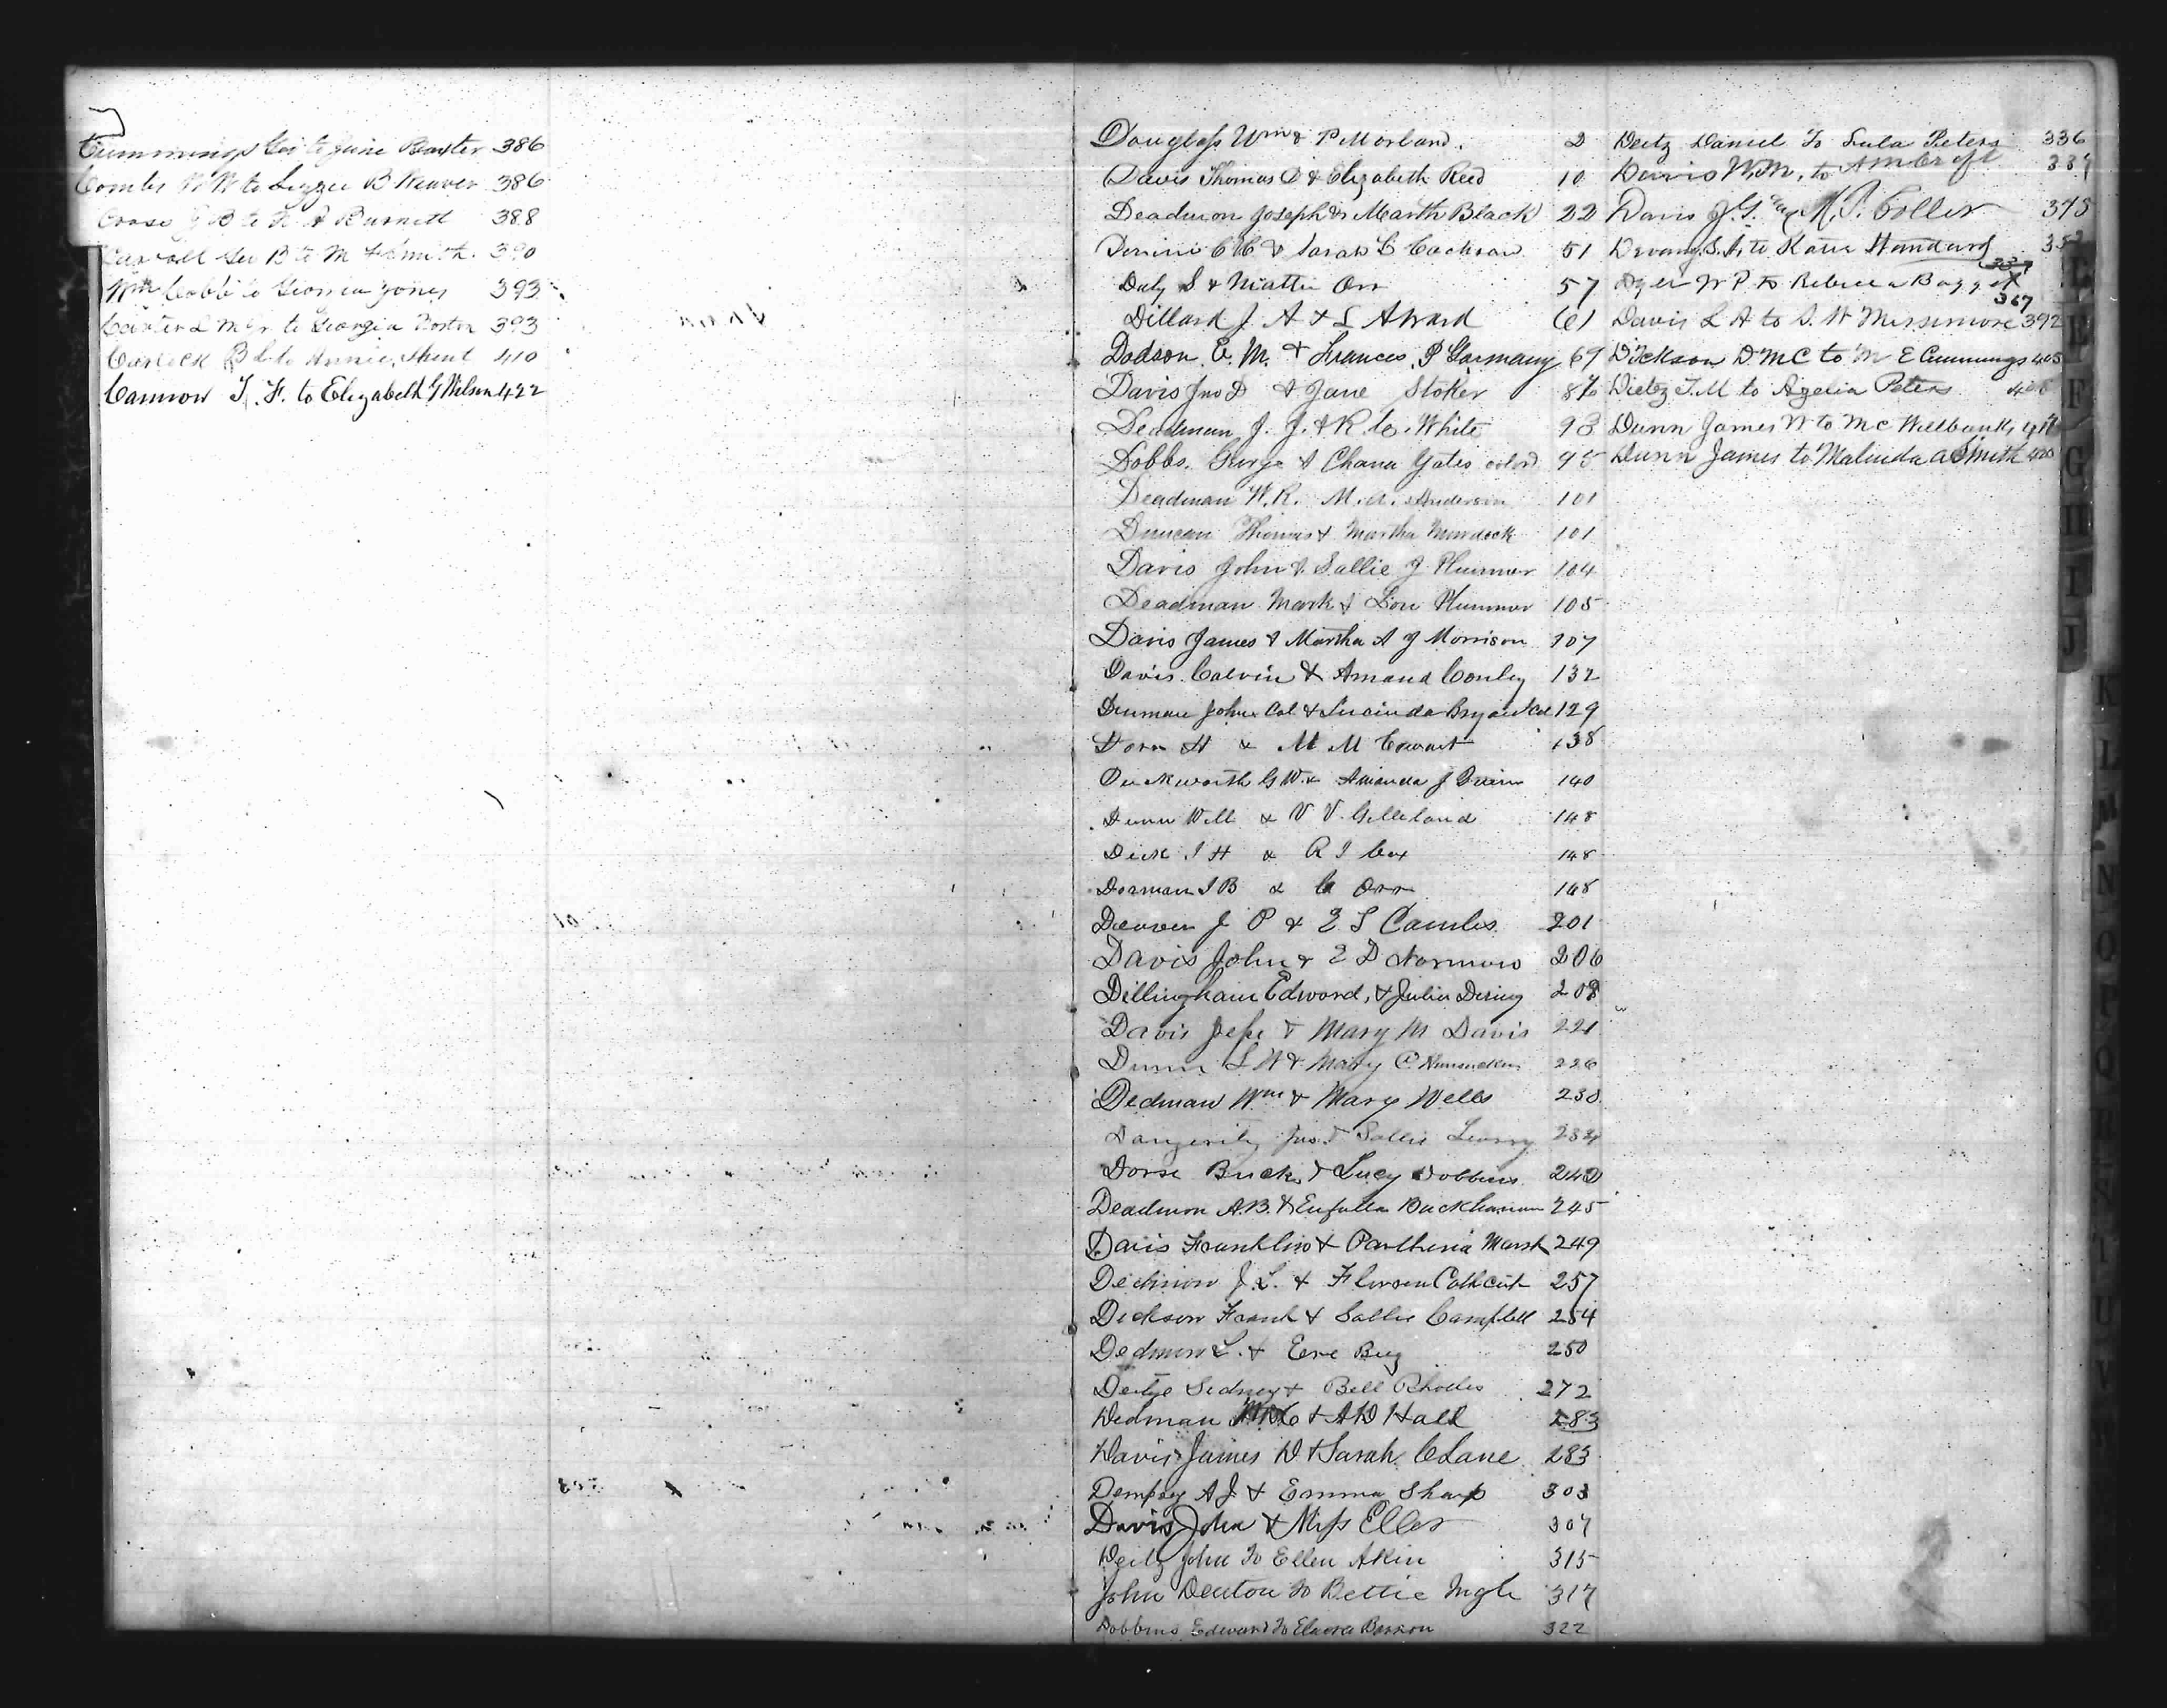 Cummings Geo to Jane Baxter 386
Combs W W to Lizzee B Weaver 386
J B to Burnett 388
Carroll Geo B to M Smith 390
Wm Cobb to Georgia Jones 393
Carter to Georgia Foster 393
Carlock to Annie 410
Cannon T. F. to Elizabeth G Wilson 422
Douglass Wm & P Morland. 2
Davis Thomas D & Elizabeth Reed 10
Deadmon Joseph & Marth Black 22
& Sarah C Cochran 51
Daly S & Mattie Orr 57
Dillard J. A & L A Ward 61
Dodson E. M. & Frances P Garmany 67
Davis Jno D & Jane Stoker 86
Deadman J. J. & R C. White 93
Dobbs George & Chana Yates colord 95
Deadman W. R. M. A. Anderson 101
Duncan Thomas & Martha Murdock 101
Davis John & Sallie J Plummer 104
Deadman Mark & Lou Plummer 105
Davis James & Martha A J Morrison 107
Davis Calvin & Amand Conley 132
Denman John Col & Lucinda Bryant Col 129
Dorn H & M M Cowart 138
Duckworth G W & Amanda J 140
Dunn Will & V V Gilleland 148
Dick I H & R I Cox 148
Dorman I B & C Orr 148
Deaver J P & E S Cambes 201
Davis John & E D Norman 206
Dillingham Edward, & Julia Dering 208
Davis Jesse & Mary M Davis 221
Dunn L W & Mary C 226
Dedman Wm & Mary Wells 230
Jas & Sallie 234
Dorse Buck & Lucy Dobbins 240
Deadmon A.B. & Eufalla Buckhanan 245
Davis Franklin & Parthenia Marsh 249
J. L. & Cathcart 257
Dickson Frank & Sallie Campbell 254
Dedmon L. & Eve 250
Deitze Sidney & Bell Rhodes 272
Dedman & A D Hall 283
Davis James D & Sarah C Lane 283
Dempsey A J & Emma Sharp 303
Davis John & Miss Eller 307
Deitz John To Ellen Akin 315
John Denton To Bettie Ingle 317
Dobbins Edward To Elnora Barron 322
Deitz Daniel To Lula Peters 336
Davis W.M. to
Davis J. G. Coller
to Katie Standard
W P to Rebecca 367
Davis L A to S. W Missimore 392
Dickson D M C to M E Cummings 405
Dietz T. M to Agelia Peters
Dunn James W to M C Wellbanks
Dunn James to Malinda A Smith 420
E
F
G
H
I
J
K
L
M
N
O